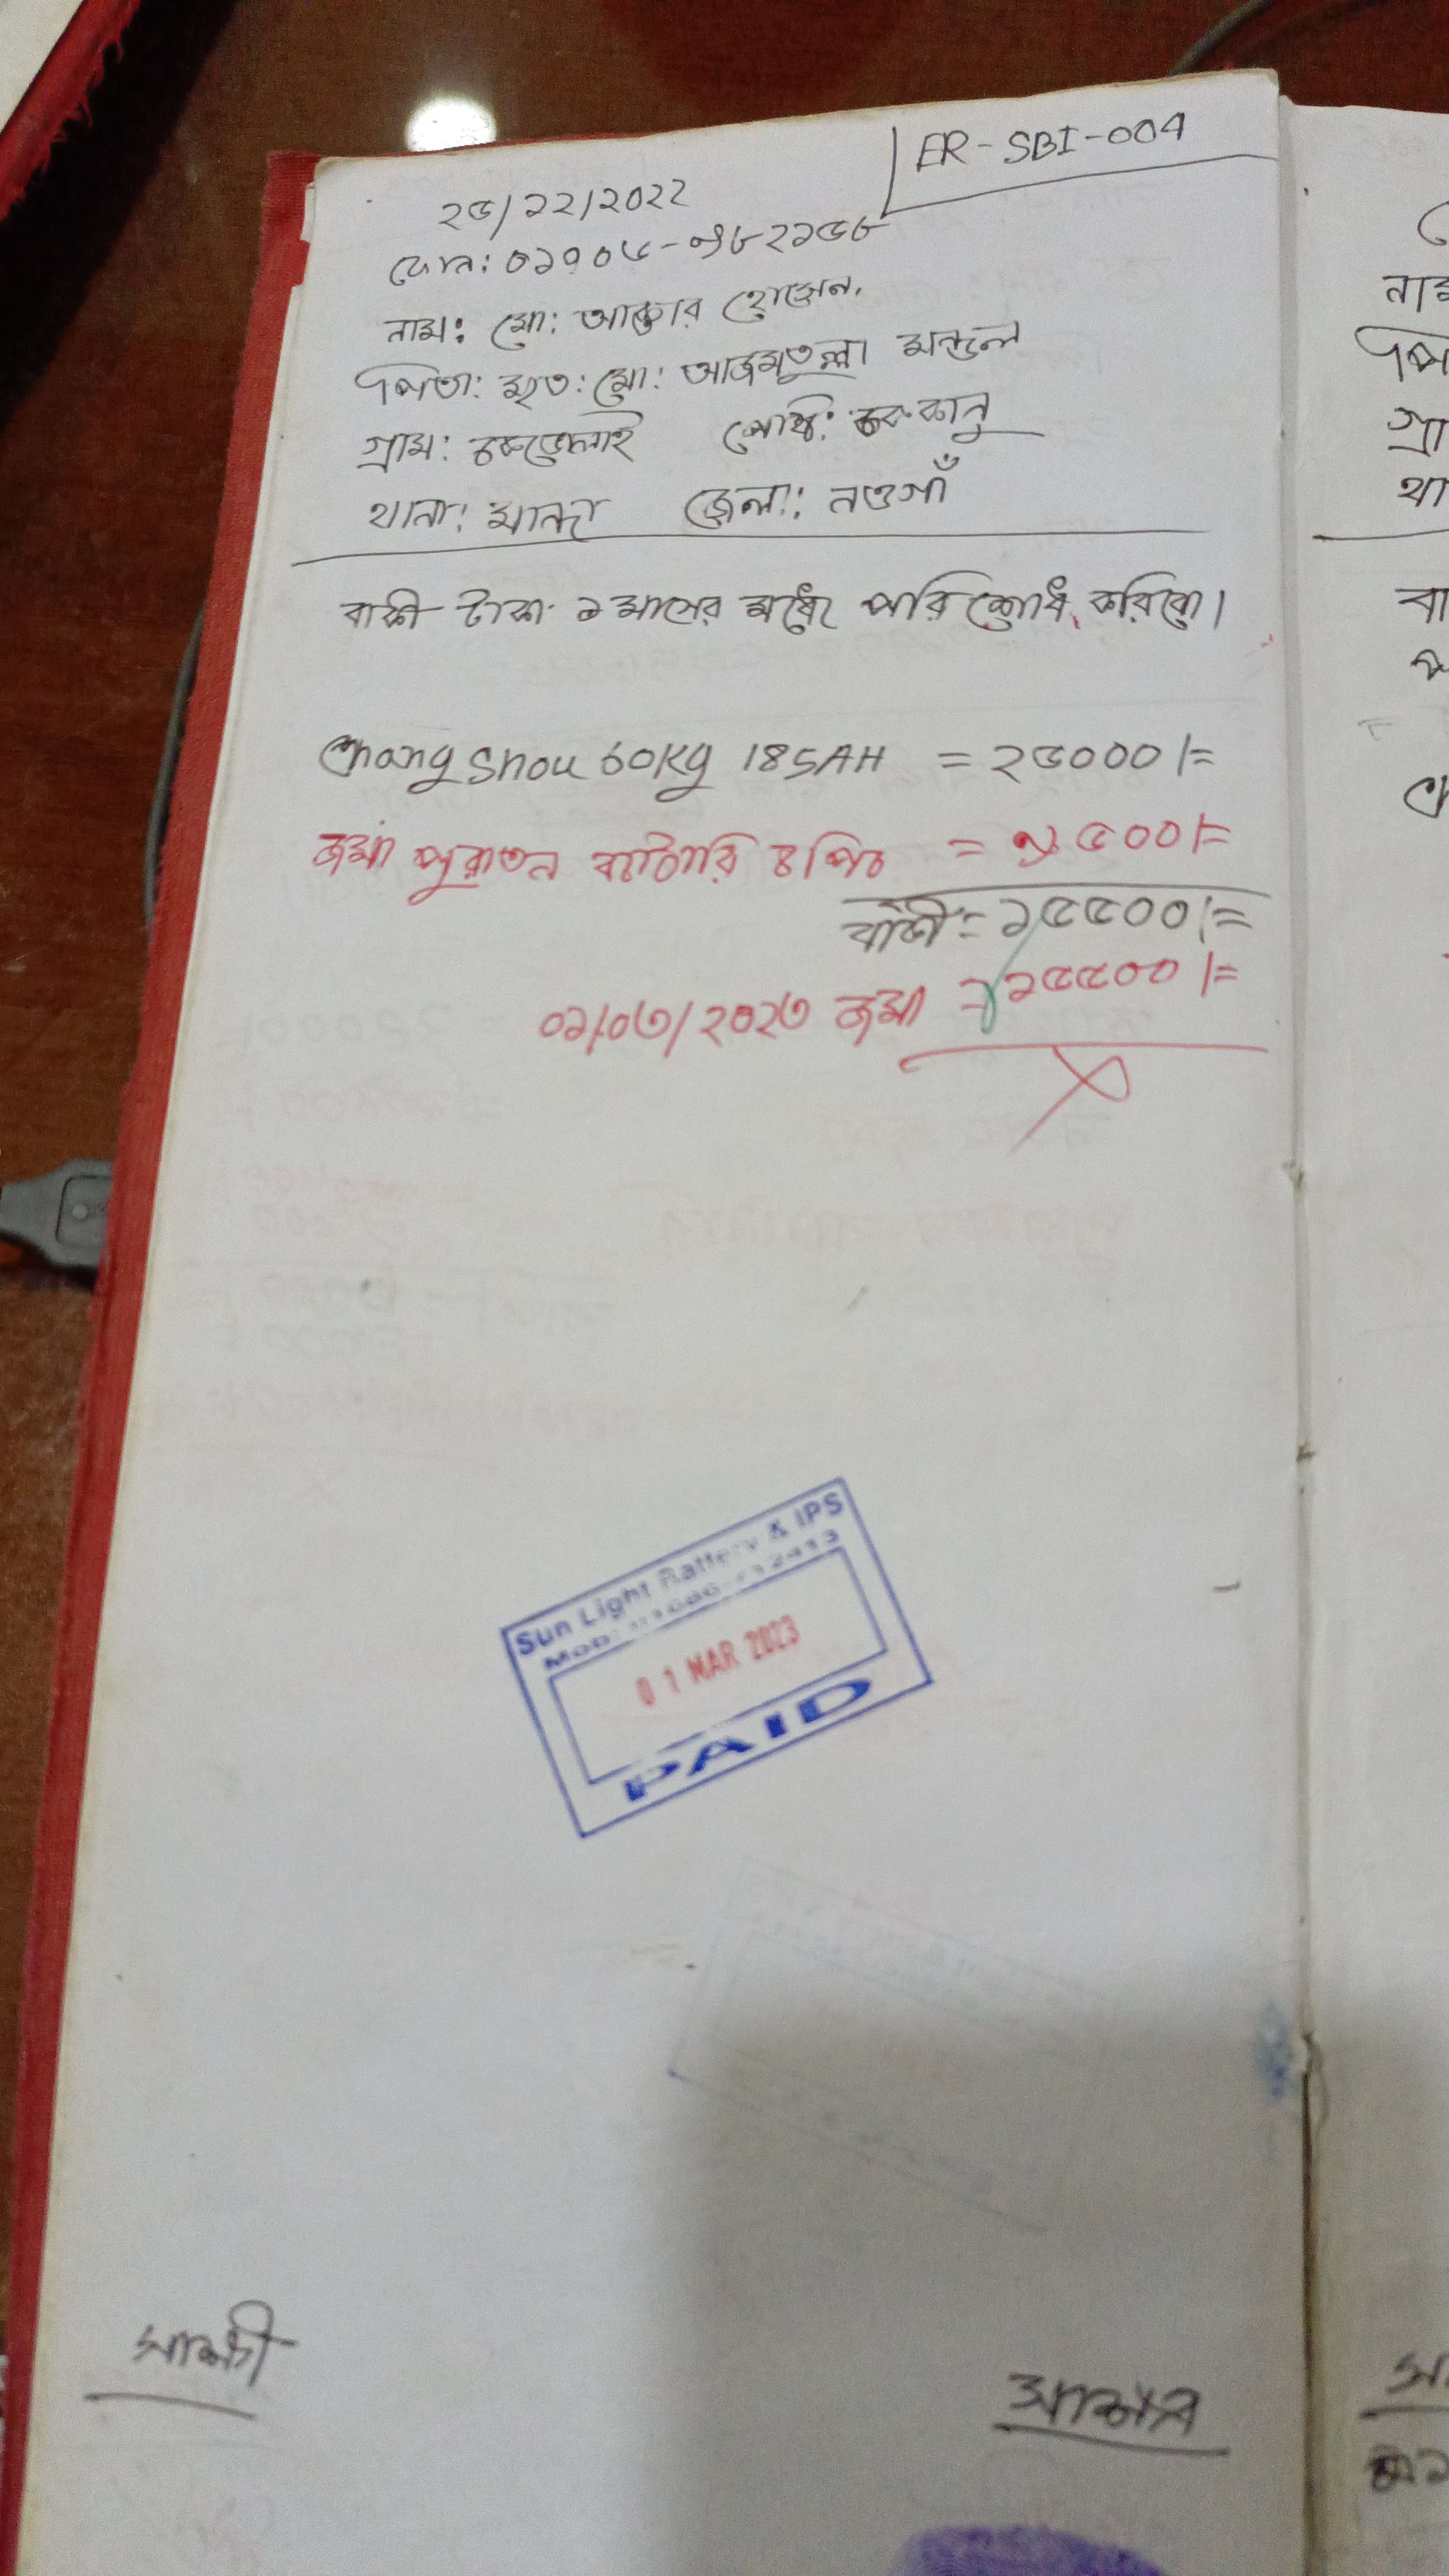 ER-SBI-004
২৫/১২/2022
ফোন: ০১৭০৬-
নাম: মো: আক্তার হোসেন,
পিতা: মৃত: মো: আজমতুল্লা মন্ডল
গ্রাম: পোষ্ট: চককানু
থানা: মান্দা জেলা: নওগাঁ
বাকী টাকা ১ মাসের মধ্যে পরিশোধ করিবো।
Chang Shou 60Kg 185AH = ২৫০০০/=
জমা পুরাতন ব্যাটারি ৪পিচ = ৯৫০০/=
বাকী = ১৫৫০০/=
০১/০৩/২০২৩ জমা = ১৫৫০০/=
Sun Light Battery & IPS
Mob:
01 MAR 2023
PAID
সাক্ষী
সাক্ষর